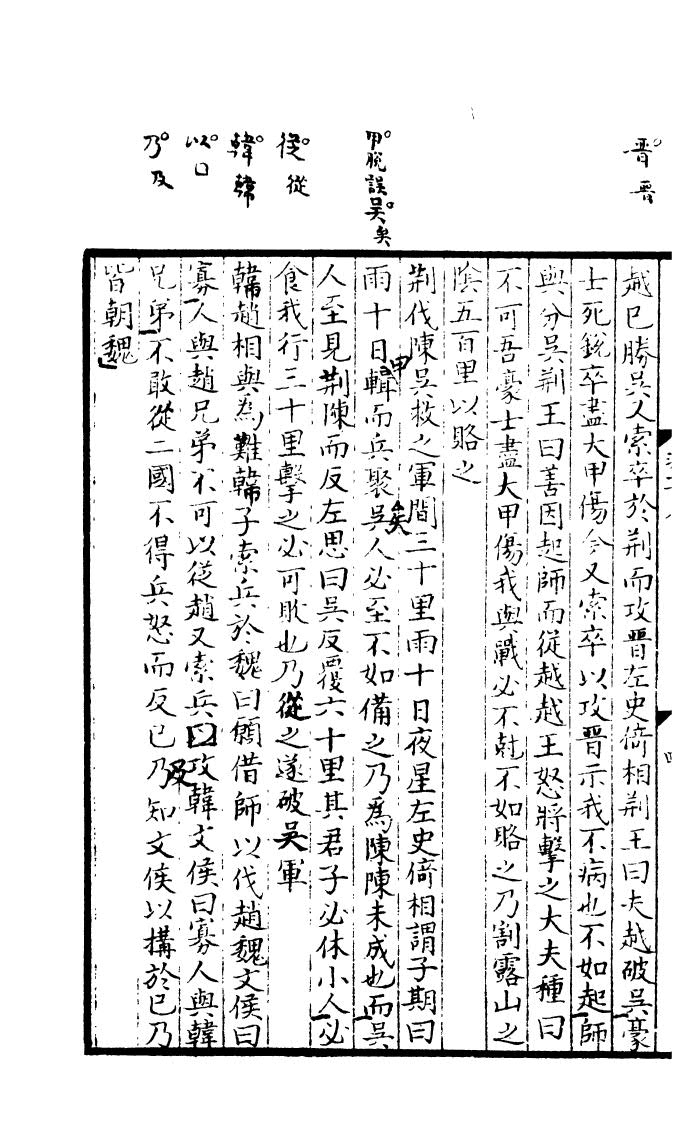 晋 晋
甲脫誤吳 矣
從 從
韓 韓
以 口
乃 及
越已勝吳又索卒於荆而攻晋左史倚相荆王曰夫越破吳豪
士死銳卒盡大甲傷今又索卒以攻晋示我不病也不如起師
與分吳荆王曰善因起師而從越越王怒將擊之大夫種曰
不可吾豪士盡大甲傷我與戰必不尅不如賂之乃割露山之
陰五百里以賂之
荆伐陳吳救之軍間三十里雨十日夜星左史倚相謂子期曰
雨十日輯而兵聚吳人必至不如備之乃為陳陳未成也而吳
人至見荆陳而反左思曰吳反覆六十里其君子必休小人必
食我行三十里擊之必可敗也乃從之遂破吳軍
韓趙相與為難韓子索兵於魏曰願借師以伐趙魏文侯曰
寡人與趙兄弟不可以從趙又索兵口攻韓文侯曰寡人與韓
兄弟不敢從二國不得兵怒而反已乃知文侯以搆於已乃
皆朝魏
甲
矣
及